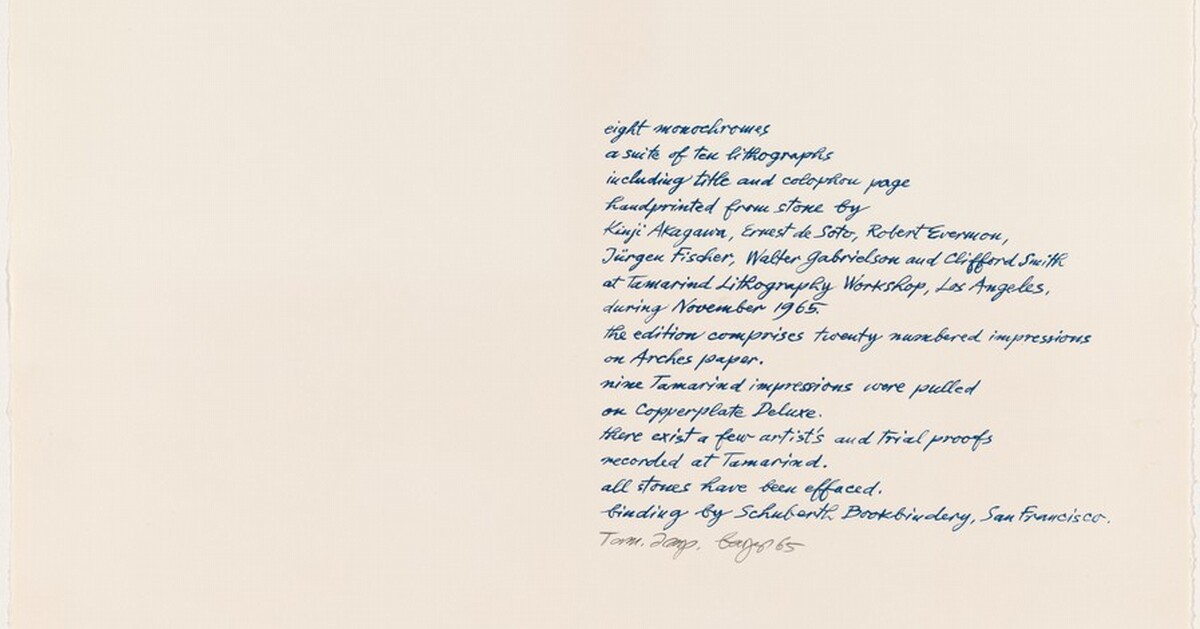 eight monochromes
a suite of ten lithographs
including title and colophon page
handprinted from stone by
Kinji Akagawa, Ernest de Soto, Robert Evermon,
Jürgen Fischer, Walter Gabrielson and Clifford Smith
at Tamarind Lithography Workshop, Los Angeles,
during November 1965.
the edition comprises twenty numbered impressions
on Arches paper.
nine Tamarind impressions were pulled
on Copperplate Deluxe.
there exist a few artist's and trial proofs
recorded at Tamarind.
all stones have been effaced.
binding by Schuberth Bookbindery, San Francisco.
Tam. Imp. Bayer 65